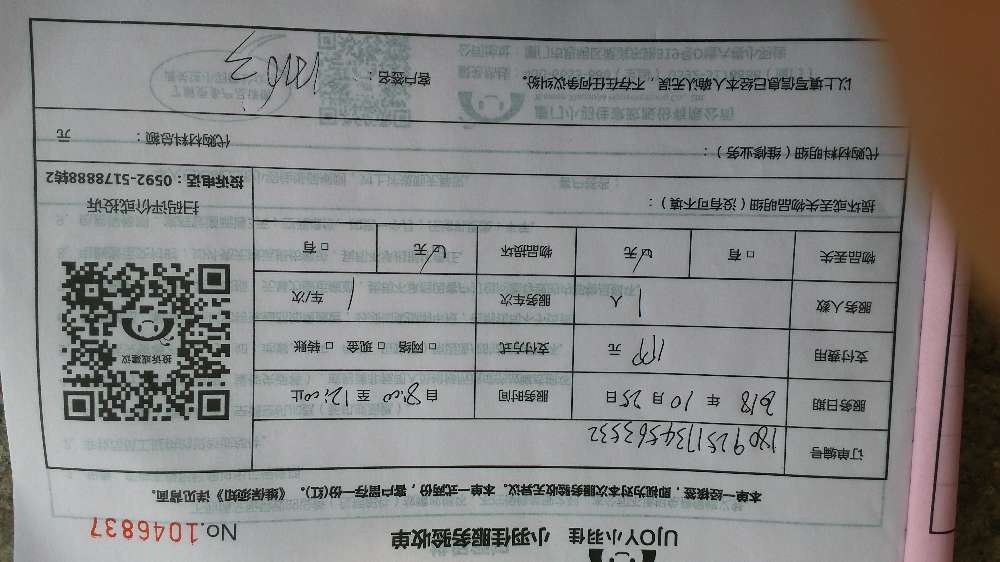 UJOY小羽佳 小羽佳服务验收单
No.1046837
本单一经核签，即视为对本次服务验收无异议。本单一式两份，客户留存一份(红)。《维保须知》详见背面。
订单编号 180925113456 3532
服务日期 2018 年 10 月 25 日 服务时间 自 8:00 至 12:00 止
支付费用 199 元 支付方式 □ 网络 □ 现金 □ 转账
服务人数 1 人 服务车次 1 车/次
物品丢失 □ 有 ☑ 无 物品损坏 ☑ 无 □ 有
投诉或建议
扫码评价或投诉
投诉电话：0592-5178888转2
损坏或丢失物品明细（没有可不填）：
代购材料明细（维修业务）： 代购材料总额： 元
以上填写信息已经本人确认无误，不存在任何争议纠纷。 客户签名：